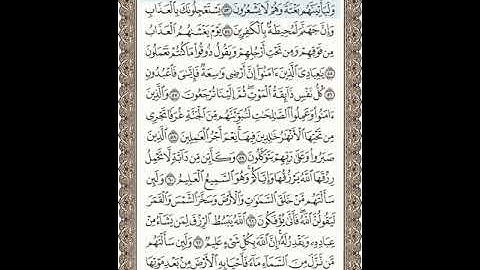 وَلَيَأْتِيَنَّهُم بَغْتَةً وَهُمْ لَا يَشْعُرُونَ ٥٣ يَسْتَعْجِلُونَكَ بِالْعَذَابِ
وَإِنَّ جَهَنَّمَ لَمُحِيطَةٌ بِالْكَٰفِرِينَ ٥٤ يَوْمَ يَغْشَىٰهُمُ الْعَذَابُ
مِن فَوْقِهِمْ وَمِن تَحْتِ أَرْجُلِهِمْ وَيَقُولُ ذُوقُوا۟ مَا كُنتُمْ تَعْمَلُونَ
٥٥ يَٰعِبَادِيَ الَّذِينَ ءَامَنُوٓا۟ إِنَّ أَرْضِي وَٰسِعَةٌ فَإِيَّٰيَ فَاعْبُدُونِ
٥٦ كُلُّ نَفْسٍ ذَآئِقَةُ الْمَوْتِ ثُمَّ إِلَيْنَا تُرْجَعُونَ ٥٧ وَالَّذِينَ
ءَامَنُوا۟ وَعَمِلُوا۟ الصَّٰلِحَٰتِ لَنُبَوِّئَنَّهُم مِّنَ الْجَنَّةِ غُرَفًا تَجْرِي
مِن تَحْتِهَا الْأَنْهَٰرُ خَٰلِدِينَ فِيهَا نِعْمَ أَجْرُ الْعَٰمِلِينَ ٥٨ الَّذِينَ
صَبَرُوا۟ وَعَلَىٰ رَبِّهِمْ يَتَوَكَّلُونَ ٥٩ وَكَأَيِّن مِّن دَآبَّةٍ لَّا تَحْمِلُ
رِزْقَهَا اللَّهُ يَرْزُقُهَا وَإِيَّاكُمْ وَهُوَ السَّمِيعُ الْعَلِيمُ ٦٠ وَلَئِن
سَأَلْتَهُم مَّنْ خَلَقَ السَّمَٰوَٰتِ وَالْأَرْضَ وَسَخَّرَ الشَّمْسَ وَالْقَمَرَ
لَيَقُولُنَّ اللَّهُ فَأَنَّىٰ يُؤْفَكُونَ ٦١ اللَّهُ يَبْسُطُ الرِّزْقَ لِمَن يَشَآءُ مِنْ
عِبَادِهِۦ وَيَقْدِرُ لَهُۥٓ إِنَّ اللَّهَ بِكُلِّ شَيْءٍ عَلِيمٌ ٦٢ وَلَئِن سَأَلْتَهُم
مَّن نَّزَّلَ مِنَ السَّمَآءِ مَآءً فَأَحْيَا بِهِ الْأَرْضَ مِن بَعْدِ مَوْتِهَا